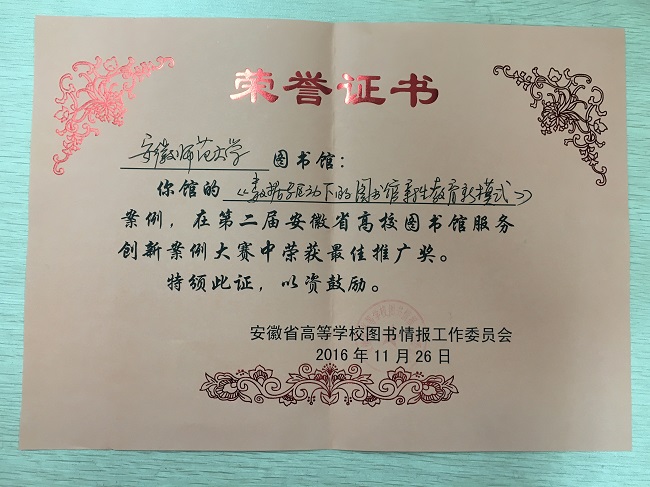 荣誉证书
安徽师范大学图书馆：
你馆的《数据驱动下的图书馆新生教育新模式》
案例，在第二届安徽省高校图书馆服务
创新案例大赛中荣获最佳推广奖。
特颁此证，以资鼓励。
安徽省高等学校图书情报工作委员会
2016年11月26日